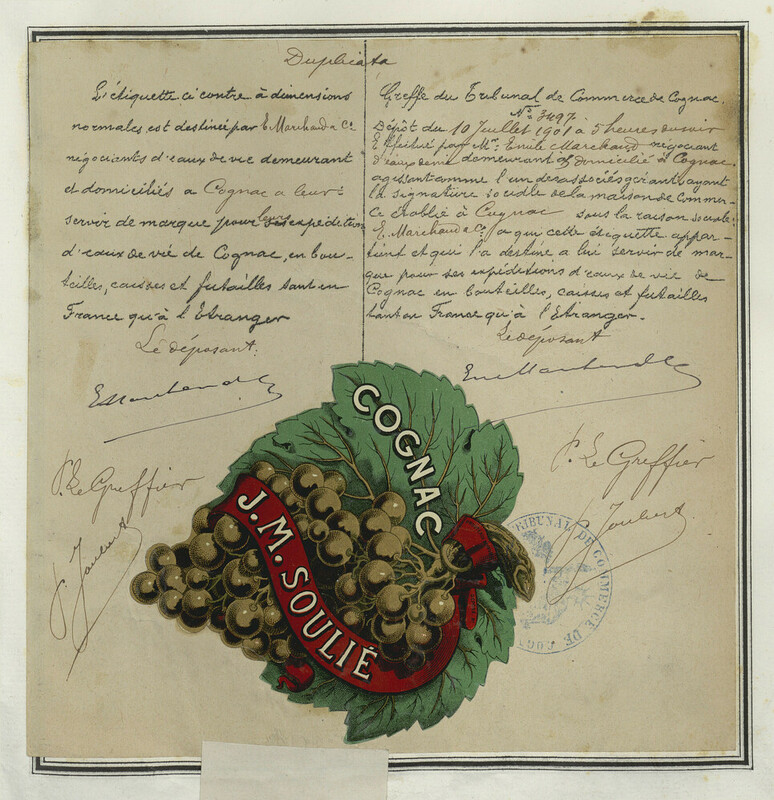 Duplicata
L'étiquette ci contre à dimensions
normales est destinée par E. Marchand & Co
négociants d'eaux de vie demeurant
et domiciliés a Cognac a leur
servir de marque pour leurs expéditions
d'eaux de vie de Cognac, en bou-
teilles, caisses et futailles tant en
France qu'à l'Etranger
Le déposant.
E Marchand & Co
P. Le Greffier
P. Joubert
Greffe du Tribunal de Commerce de Cognac.
No 3497
Dépôt du 10 Juillet 1901 à 5 heures du soir
Effectué par Mr. Emile Marchand négociant
d'eaux de vie demeurant et domicilié à Cognac,
agissant comme l'un des associés gérant, ayant
la signature sociale de la maison de Commer-
ce établie à Cognac sous la raison sociale:
E. Marchand & Co, a qui cette étiquette appar-
tient et qui l'a destine a lui servir de mar-
que pour ses expéditions d'eaux de vie de
Cognac en bouteilles, caisses et futailles
tant en France qu'à l'Etranger.
Le déposant
E Marchand & Co
P. Le Greffier
P. Joubert
COGNAC
J.M. SOULIÉ
TRIBUNAL DE COMMERCE DE COGN